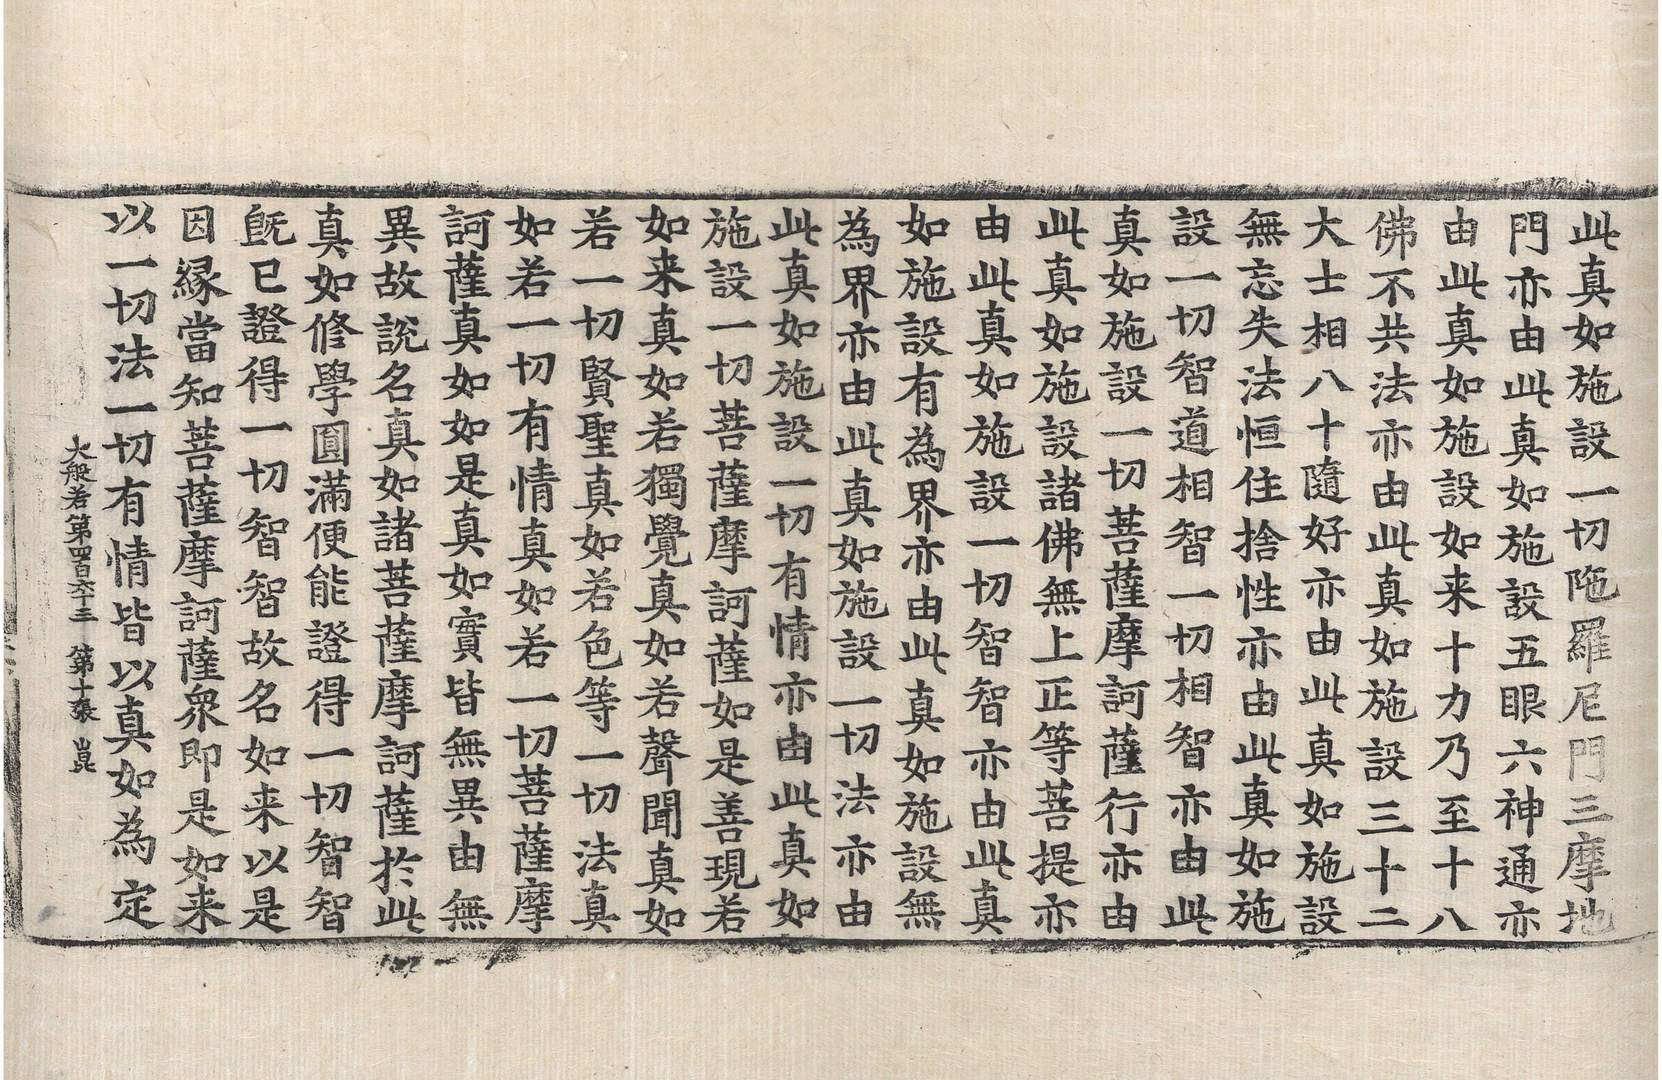 此真如施設一切陁羅尼門三摩地
門亦由此真如施設五眼六神通亦
由此真如施設如来十力乃至十八
佛不共法亦由此真如施設三十二
大士相八十隨好亦由此真如施設
無忘失法恒住捨性亦由此真如施
設一切智道相智一切相智亦由此
真如施設一切菩薩摩訶薩行亦由
此真如施設諸佛無上正等菩提亦
由此真如施設一切智智亦由此真
如施設有為界亦由此真如施設無
為界亦由此真如施設一切法亦由
此真如施設一切有情亦由此真如
施設一切菩薩摩訶薩如是善現若
如来真如若獨覺真如若聲聞真如
若一切賢聖真如若色等一切法真
如若一切有情真如若一切菩薩摩
訶薩真如如是真如實皆無異由無
異故說名真如諸菩薩摩訶薩於此
真如修學圓滿便能證得一切智智
旣已證得一切智智故名如来以是
因縁當知菩薩摩訶薩衆即是如来
以一切法一切有情皆以真如為定
大般若第四百六十三 第十張 崑